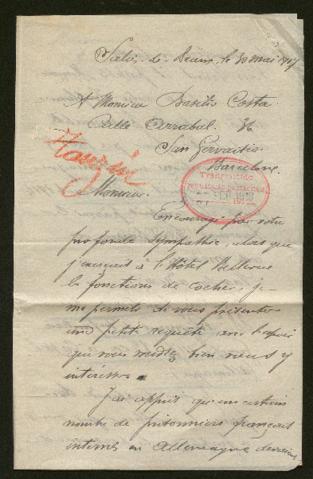 le 30 mai 1917
A Monsieur Basilis Costa
Calle Arrabal. 36
San Gervasio
Barcelone
Tauzin
Monsieur
Encouragé par votre
profonde sympathie, alors que
j'exerçais à l'Hôtel Bellevue
les fonctions de cocher, je
me permets de vous présenter
une petite requête avec l'espoir
que vous voudrez bien vous y
intéresser.
J'ai appris que un certain
nombre de prisonniers français
internés en Allemagne